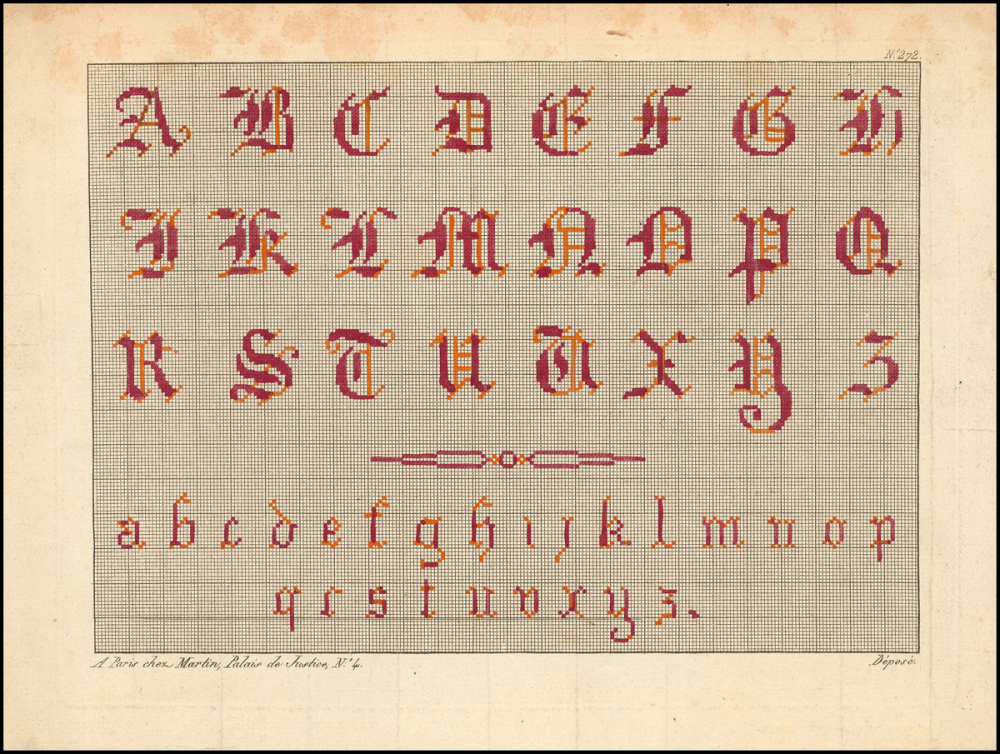 N.º 272.
A B C D E F G H
I K L M N O P Q
R S T U V X Y Z
a b c d e f g h i j k l m n o p
q r s t u v x y z.
A Paris chez Martin, Palais de Justice, N.º 4.
Déposé.